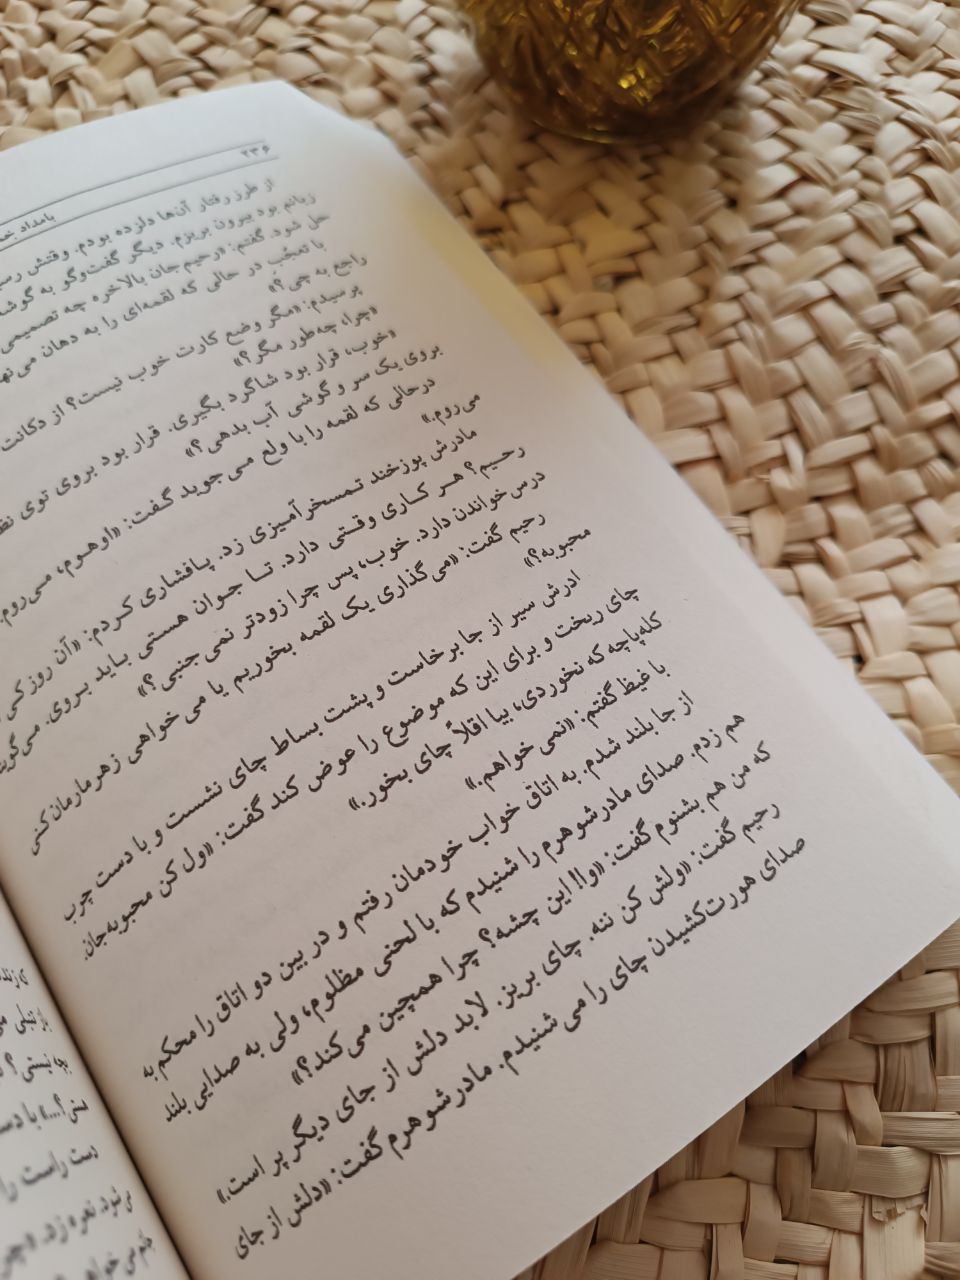 ۲۳۶
بامداد
از طرز رفتار آن‌ها دلزده بودم. وقتش
زبانم بود بیرون بریزم. دیگر گفت‌وگو به
حل شود. گفتم: «رحیم جان بالاخره چه تصمیمی
با تعجّب در حالی که لقمه‌ای را به دهان
راجع به چی؟»
پرسیدم: «مگر وضع کارت خوب نیست؟ از دکانت
«چرا، چه‌طور مگر؟»
«خوب، قرار بود شاگرد بگیری. قرار بود بروی توی
بروی یک سر و گوشی آب بدهی؟»
درحالی که لقمه را با ولع می‌جوید گفت: «اوهوم، می‌روم.
می‌روم.»
مادرش پوزخند تمسخرآمیزی زد. پافشاری کردم: «آن روز کی
رحیم؟ هر کاری وقتی دارد. تا جوان هستی باید بروی.
درس خواندن دارد. خوب، پس چرا زودتر نمی‌جنبی؟»
رحیم گفت: «می‌گذاری یک لقمه بخوریم یا می‌خواهی زهرمارمان کنی
محبوبه؟»
ادرش سیر از جا برخاست و پشت بساط چای نشست و با دست چرب
چای ریخت و برای این که موضوع را عوض کند گفت: «ول کن محبوبه‌جان.
کله‌پاچه که نخوردی، بیا اقلاً چای بخور.»
با غیظ گفتم: «نمی‌خواهم.»
از جا بلند شدم. به اتاق خواب خودمان رفتم و در بین دو اتاق را محکم به
هم زدم. صدای مادرشوهرم را شنیدم که با لحنی مظلوم، ولی به صدایی بلند
که من هم بشنوم گفت: «وا! این چشه؟ چرا همچین می‌کند؟»
رحیم گفت: «ولش کن ننه. چای بریز. لابد دلش از جای دیگر پر است.»
صدای هورت‌کشیدن چای را می‌شنیدم. مادرشوهرم گفت: «دلش از جای
بچه نیستی؟
دست راست را